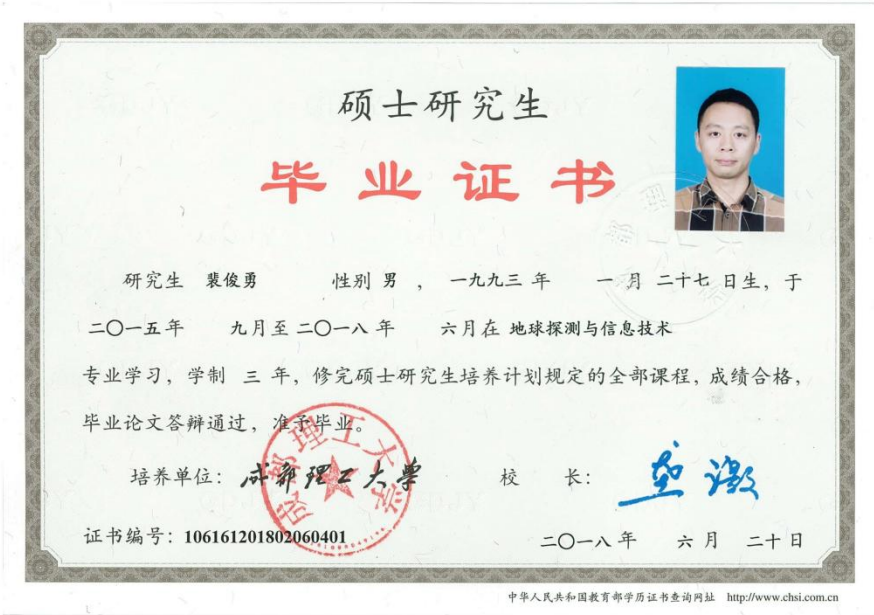 硕士研究生
毕业证书
研究生 裴俊勇 性别 男 ，一九九三 年 一 月 二十七 日生，于
二〇一五年 九月至 二〇一八 年 六月在 地球探测与信息技术
专业学习，学制 三 年，修完硕士研究生培养计划规定的全部课程，成绩合格，
毕业论文答辩通过，准予毕业。
培养单位：成都理工大学 校 长：
成都理工大学
证书编号：106161201802060401 二〇一八 年 六 月 二十 日
中华人民共和国教育部学历证书查询网址 http://www.chsi.com.cn